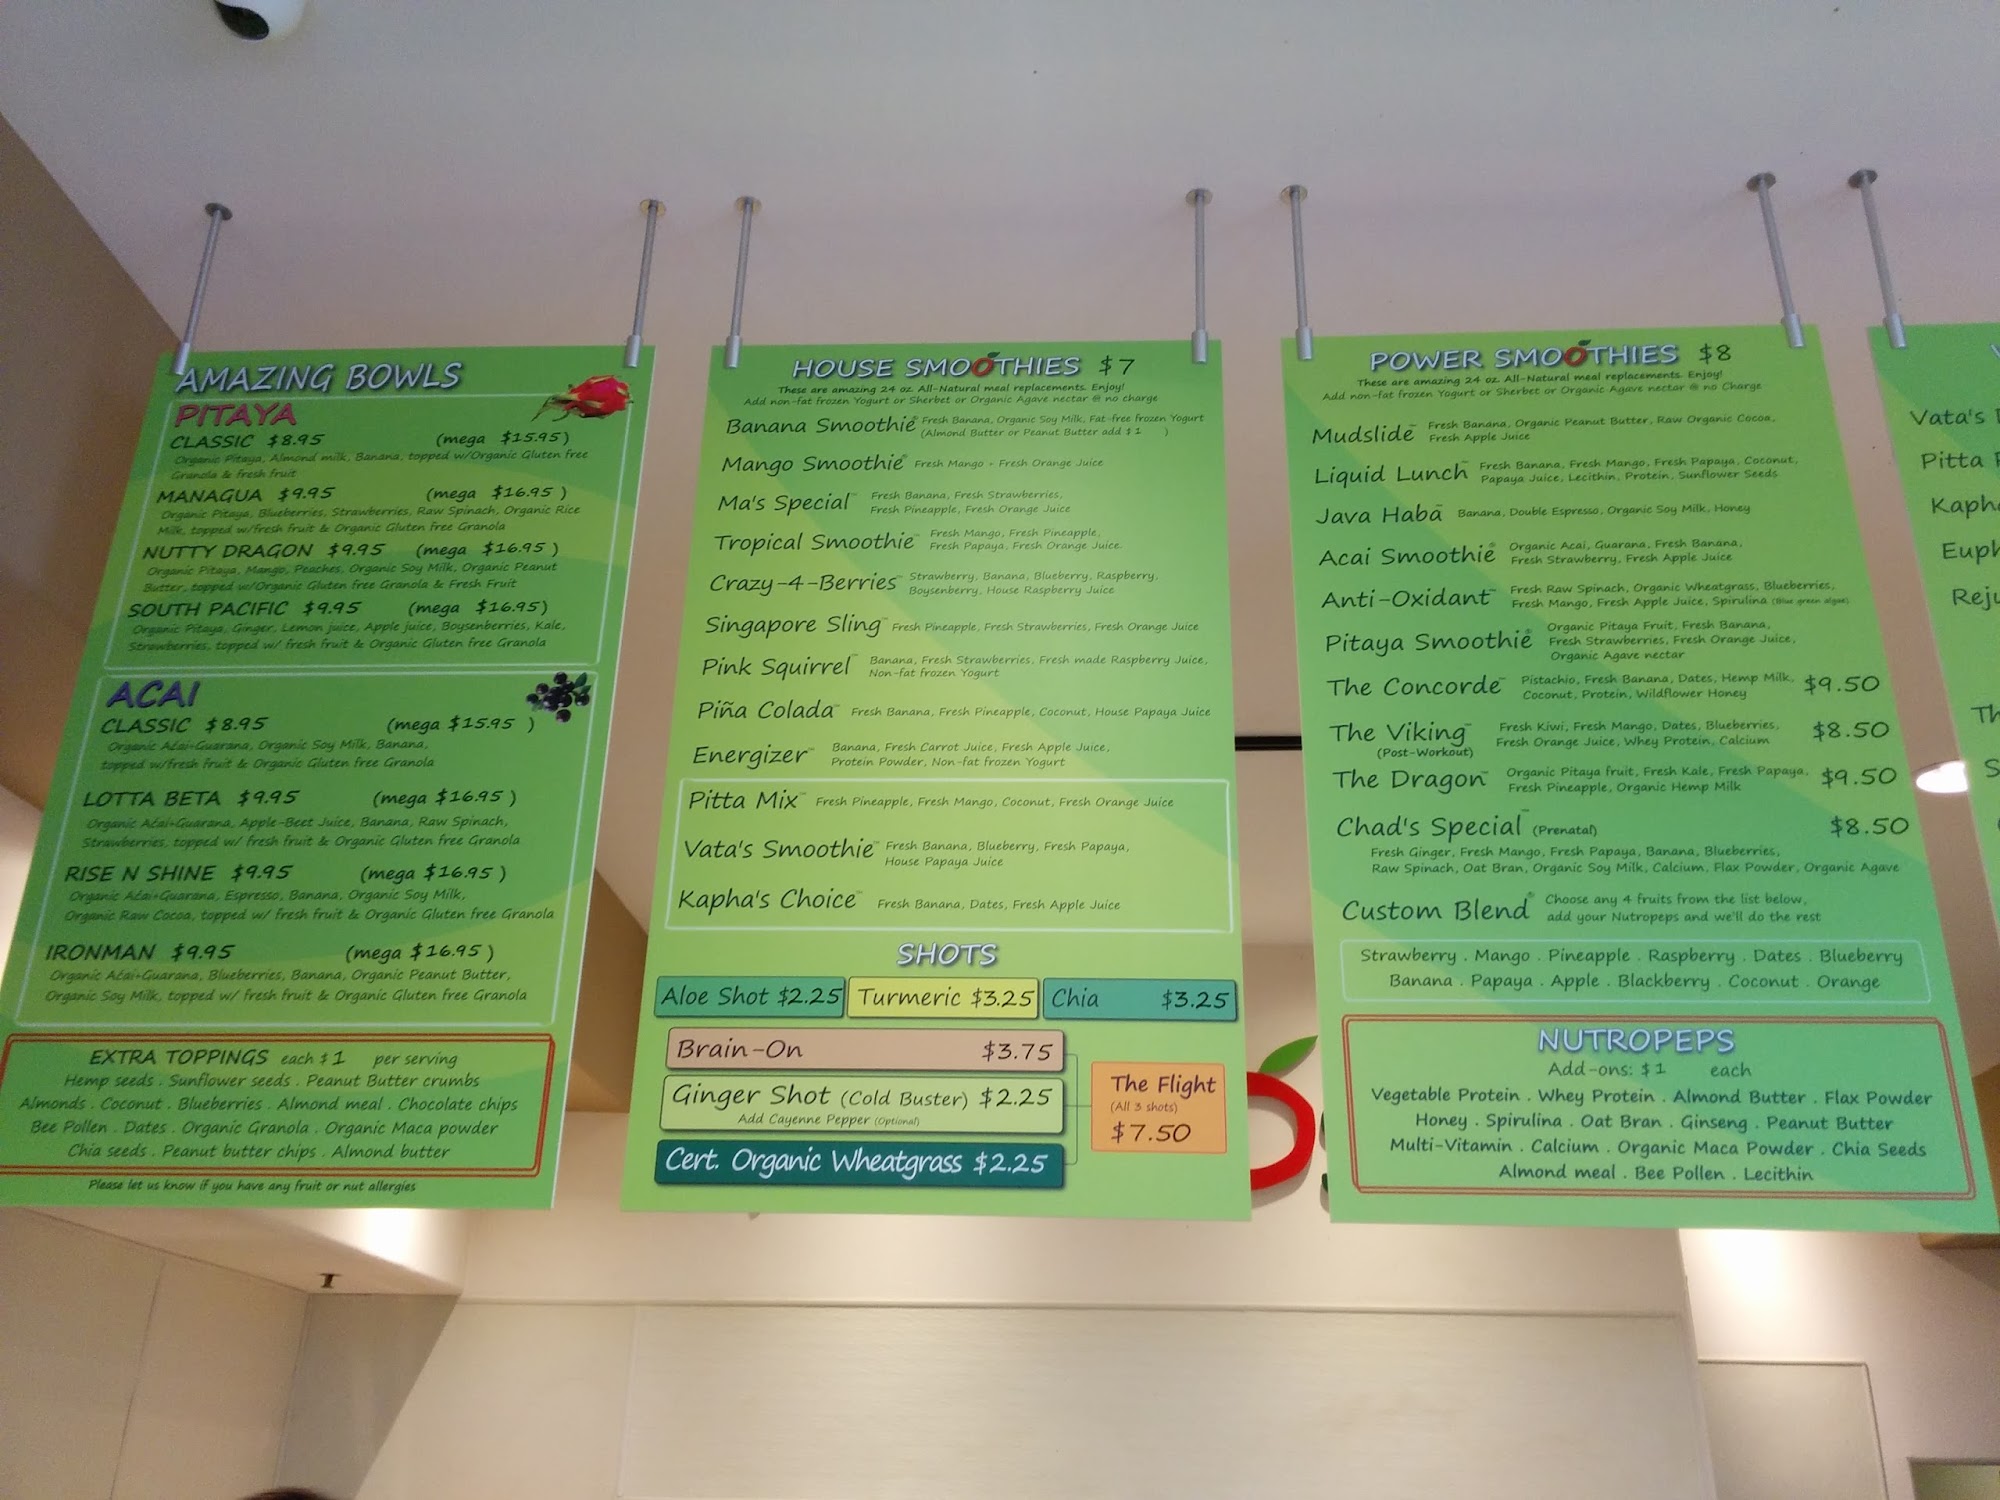 AMAZING BOWLS
PITAYA
CLASSIC $8.95 (mega $15.95)
Organic Pitaya, Almond milk, Banana, topped w/Organic Gluten free
Granola & fresh fruit
MANAGUA $9.95 (mega $16.95)
Organic Pitaya, Blueberries, Strawberries, Raw Spinach, Organic Rice
Milk, topped w/fresh fruit & Organic Gluten free Granola
NUTTY DRAGON $9.95 (mega $16.95)
Organic Pitaya, Mango, Peaches, Organic Soy Milk, Organic Peanut
Butter, topped w/Organic Gluten free Granola & Fresh Fruit
SOUTH PACIFIC $9.95 (mega $16.95)
Organic Pitaya, Ginger, Lemon juice, Apple juice, Boysenberries, Kale,
Strawberries, topped w/ fresh fruit & Organic Gluten free Granola
ACAI
CLASSIC $8.95 (mega $15.95 )
Organic Acai+Guarana, Organic Soy Milk, Banana,
topped w/fresh fruit & Organic Gluten free Granola
LOTTA BETA $9.95 (mega $16.95 )
Organic Acai+Guarana, Apple-Beet Juice, Banana, Raw Spinach,
Strawberries, topped w/ fresh fruit & Organic Gluten free Granola
RISE N SHINE $9.95 (mega $16.95 )
Organic Acai+Guarana, Espresso, Banana, Organic Soy Milk,
Organic Raw Cocoa, topped w/ fresh fruit & Organic Gluten free Granola
IRONMAN $9.95 (mega $16.95 )
Organic Acai+Guarana, Blueberries, Banana, Organic Peanut Butter,
Organic Soy Milk, topped w/ fresh fruit & Organic Gluten free Granola
EXTRA TOPPINGS each $1 per serving
Hemp seeds . Sunflower seeds . Peanut Butter crumbs
Almonds . Coconut . Blueberries . Almond meal . Chocolate chips
Bee Pollen . Dates . Organic Granola . Organic Maca powder
Chia seeds . Peanut butter chips . Almond butter
Please let us know if you have any fruit or nut allergies
HOUSE SMOOTHIES $7
These are amazing 24 oz. All-Natural meal replacements. Enjoy!
Add non-fat frozen Yogurt or Sherbet or Organic Agave nectar @ no charge
Banana Smoothie® Fresh Banana, Organic Soy Milk, Fat-free frozen Yogurt
(Almond Butter or Peanut Butter add $1 )
Mango Smoothie® Fresh Mango + Fresh Orange Juice
Ma's Special™ Fresh Banana, Fresh Strawberries,
Fresh Pineapple, Fresh Orange Juice
Tropical Smoothie™ Fresh Mango, Fresh Pineapple,
Fresh Papaya, Fresh Orange Juice.
Crazy-4-Berries™ Strawberry, Banana, Blueberry, Raspberry,
Boysenberry, House Raspberry Juice
Singapore Sling™ Fresh Pineapple, Fresh Strawberries, Fresh Orange Juice
Pink Squirrel™ Banana, Fresh Strawberries, Fresh made Raspberry Juice,
Non-fat frozen Yogurt
Piña Colada™ Fresh Banana, Fresh Pineapple, Coconut, House Papaya Juice
Energizer™ Banana, Fresh Carrot Juice, Fresh Apple Juice,
Protein Powder, Non-fat frozen Yogurt
Pitta Mix™ Fresh Pineapple, Fresh Mango, Coconut, Fresh Orange Juice
Vata's Smoothie™ Fresh Banana, Blueberry, Fresh Papaya,
House Papaya Juice
Kapha's Choice™ Fresh Banana, Dates, Fresh Apple Juice
SHOTS
Aloe Shot $2.25 Turmeric $3.25 Chia $3.25
Brain-On $3.75
Ginger Shot (Cold Buster) $2.25
Add Cayenne Pepper (Optional)
Cert. Organic Wheatgrass $2.25
The Flight
(All 3 shots)
$7.50
POWER SMOOTHIES $8
These are amazing 24 oz. All-Natural meal replacements. Enjoy!
Add non-fat frozen Yogurt or Sherbet or Organic Agave nectar @ no Charge
Mudslide™ Fresh Banana, Organic Peanut Butter, Raw Organic Cocoa,
Fresh Apple Juice
Liquid Lunch™ Fresh Banana, Fresh Mango, Fresh Papaya, Coconut,
Papaya Juice, Lecithin, Protein, Sunflower Seeds
Java Haba™ Banana, Double Espresso, Organic Soy Milk, Honey
Acai Smoothie® Organic Acai, Guarana, Fresh Banana,
Fresh Strawberry, Fresh Apple Juice
Anti-Oxidant™ Fresh Raw Spinach, Organic Wheatgrass, Blueberries,
Fresh Mango, Fresh Apple Juice, Spirulina (Blue green algae)
Pitaya Smoothie® Organic Pitaya Fruit, Fresh Banana,
Fresh Strawberries, Fresh Orange Juice,
Organic Agave nectar
The Concorde™ Pistachio, Fresh Banana, Dates, Hemp Milk, $9.50
Coconut, Protein, Wildflower Honey
The Viking™ Fresh Kiwi, Fresh Mango, Dates, Blueberries, $8.50
(Post-Workout) Fresh Orange Juice, Whey Protein, Calcium
The Dragon™ Organic Pitaya fruit, Fresh Kale, Fresh Papaya, $9.50
Fresh Pineapple, Organic Hemp Milk
Chad's Special™ (Prenatal) $8.50
Fresh Ginger, Fresh Mango, Fresh Papaya, Banana, Blueberries,
Raw Spinach, Oat Bran, Organic Soy Milk, Calcium, Flax Powder, Organic Agave
Custom Blend® Choose any 4 fruits from the list below,
add your Nutropeps and we'll do the rest
Strawberry . Mango . Pineapple . Raspberry . Dates . Blueberry
Banana . Papaya . Apple . Blackberry . Coconut . Orange
NUTROPEPS
Add-ons: $1 each
Vegetable Protein . Whey Protein . Almond Butter . Flax Powder
Honey . Spirulina . Oat Bran . Ginseng . Peanut Butter
Multi-Vitamin . Calcium . Organic Maca Powder . Chia Seeds
Almond meal . Bee Pollen . Lecithin
Vata's
Pitta